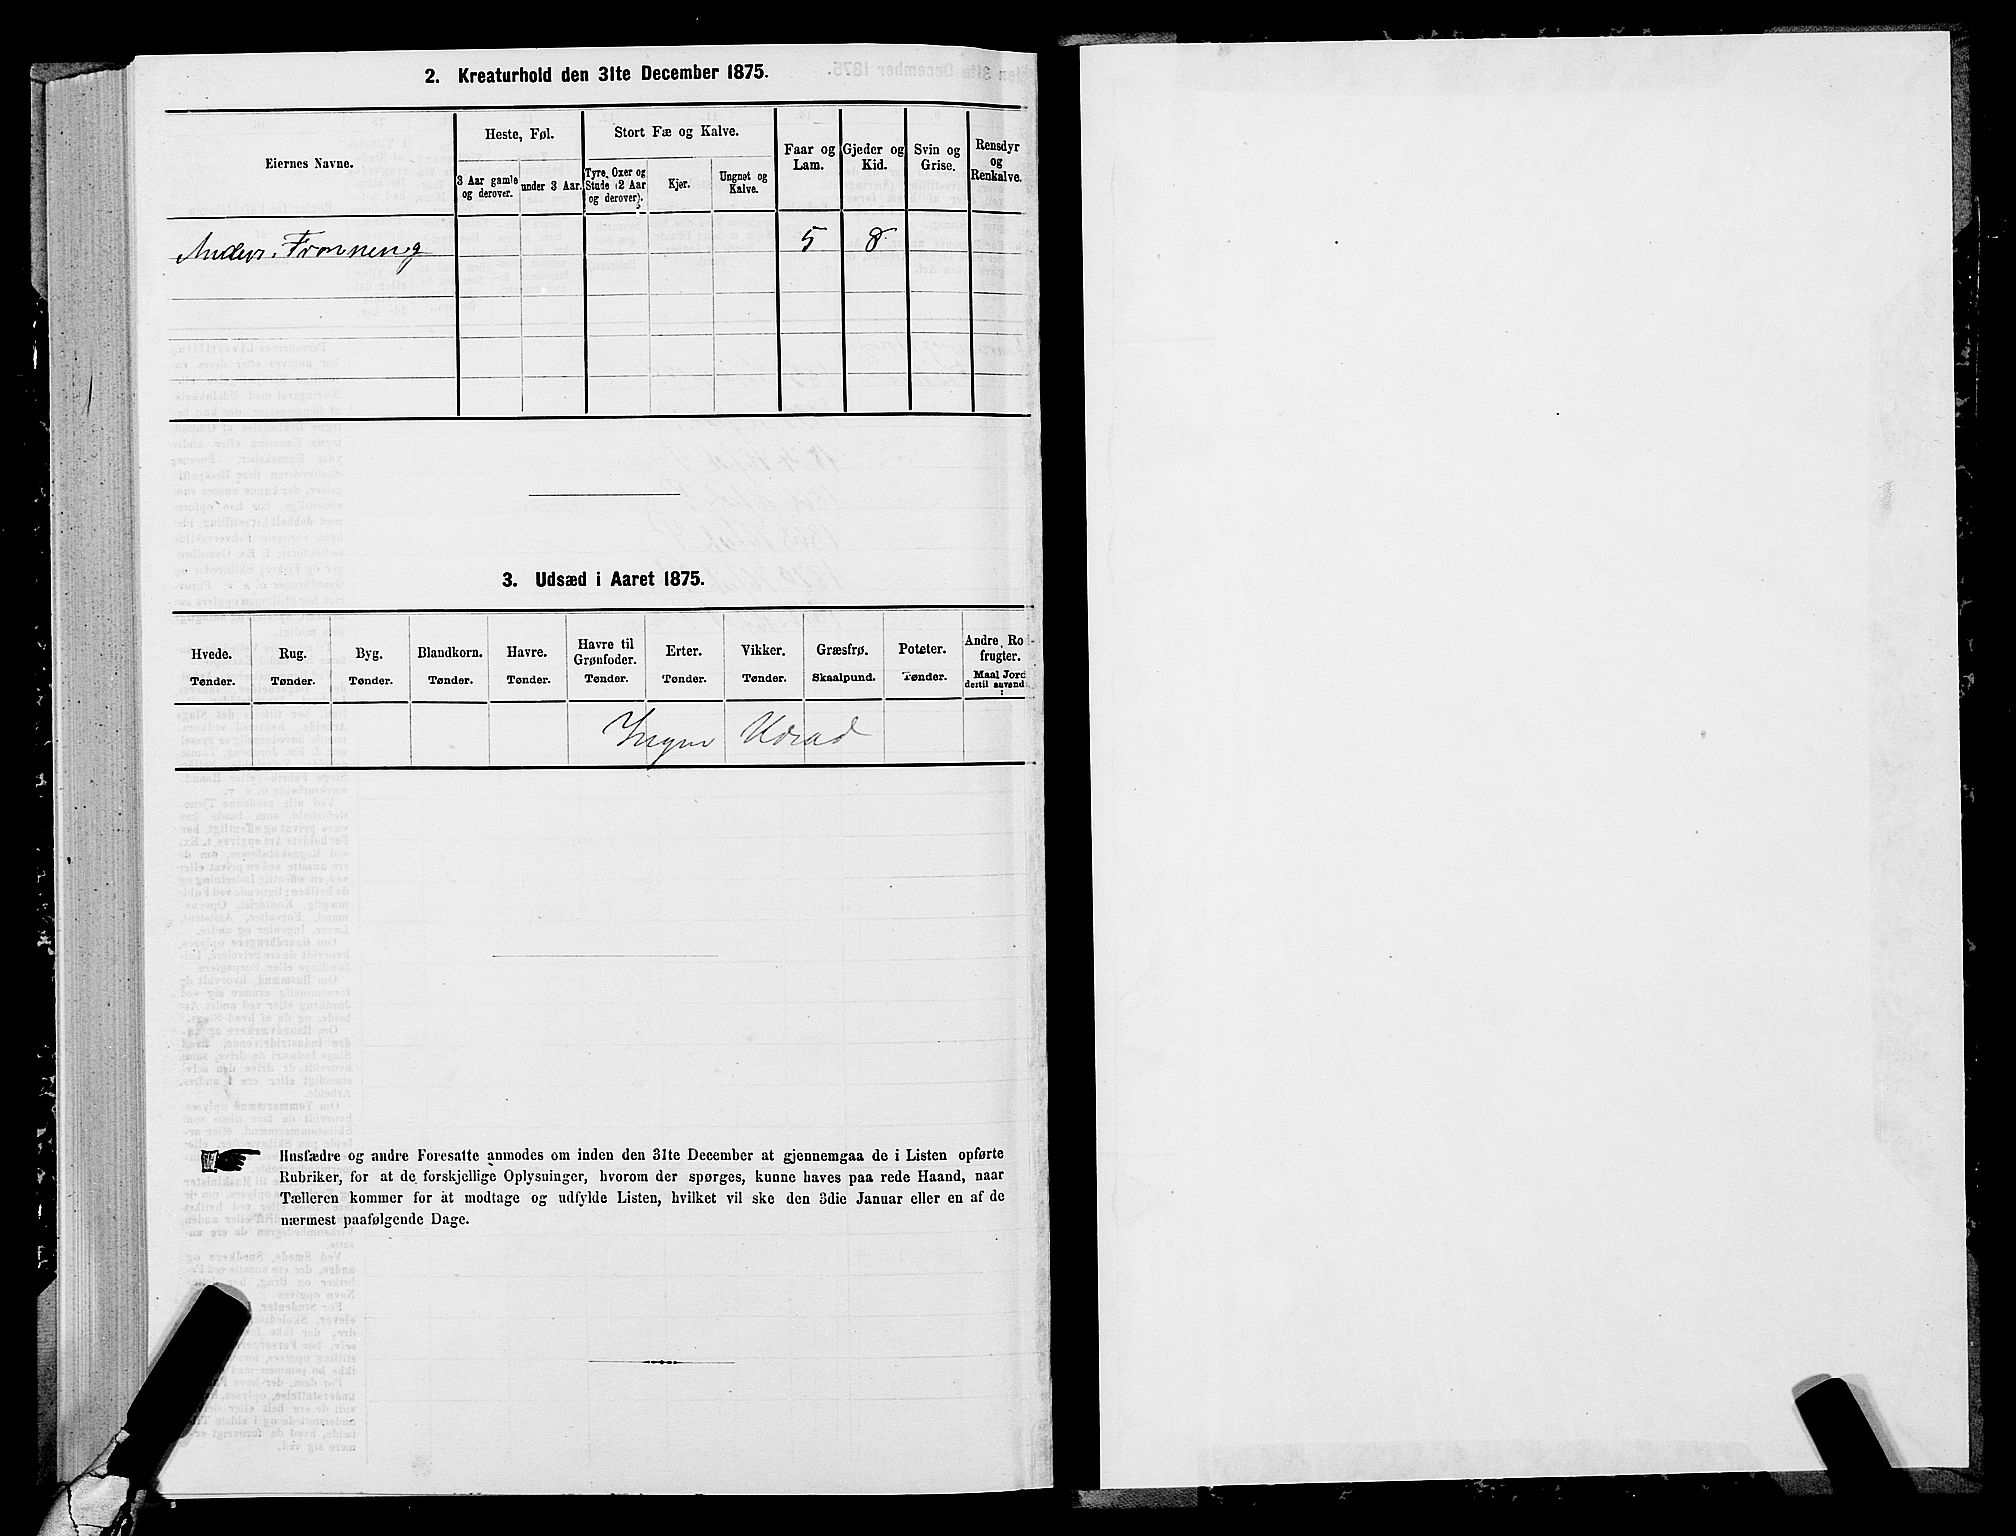 2. Kreaturhold den 31te December 1875.
Eiernes Navne.
Heste, Føl.
3 Aar gamle og derover.
under 3 Aar.
Stort Fæ og Kalve.
Tyre, Oxer og Stude (2 Aar og derover).
Kjør.
Ungnøt og Kalve.
Faar og Lam.
Gjeder og Kid.
Svin og Grise.
Rensdyr og Renkalve.
Anders Fronneng 5 8
3. Udsæd i Aaret 1875.
Hvede. Tønder.
Rug. Tønder.
Byg. Tønder.
Blandkorn. Tønder.
Havre. Tønder.
Havre til Grønfoder. Tønder.
Erter. Tønder.
Vikker. Tønder.
Græsfrø. Skaalpund.
Poteter. Tønder.
Andre Rodfrugter. Maal Jord dertil anvendt
Ingen Udsæd
Husfædre og andre Foresatte anmodes om inden den 31te December at gjennemgaa de i Listen opførte
Rubriker, for at de forskjellige Oplysninger, hvorom der spørges, kunne haves paa rede Haand, naar
Tælleren kommer for at modtage og udfylde Listen, hvilket vil ske den 3die Januar eller en af de
nærmest paafølgende Dage.